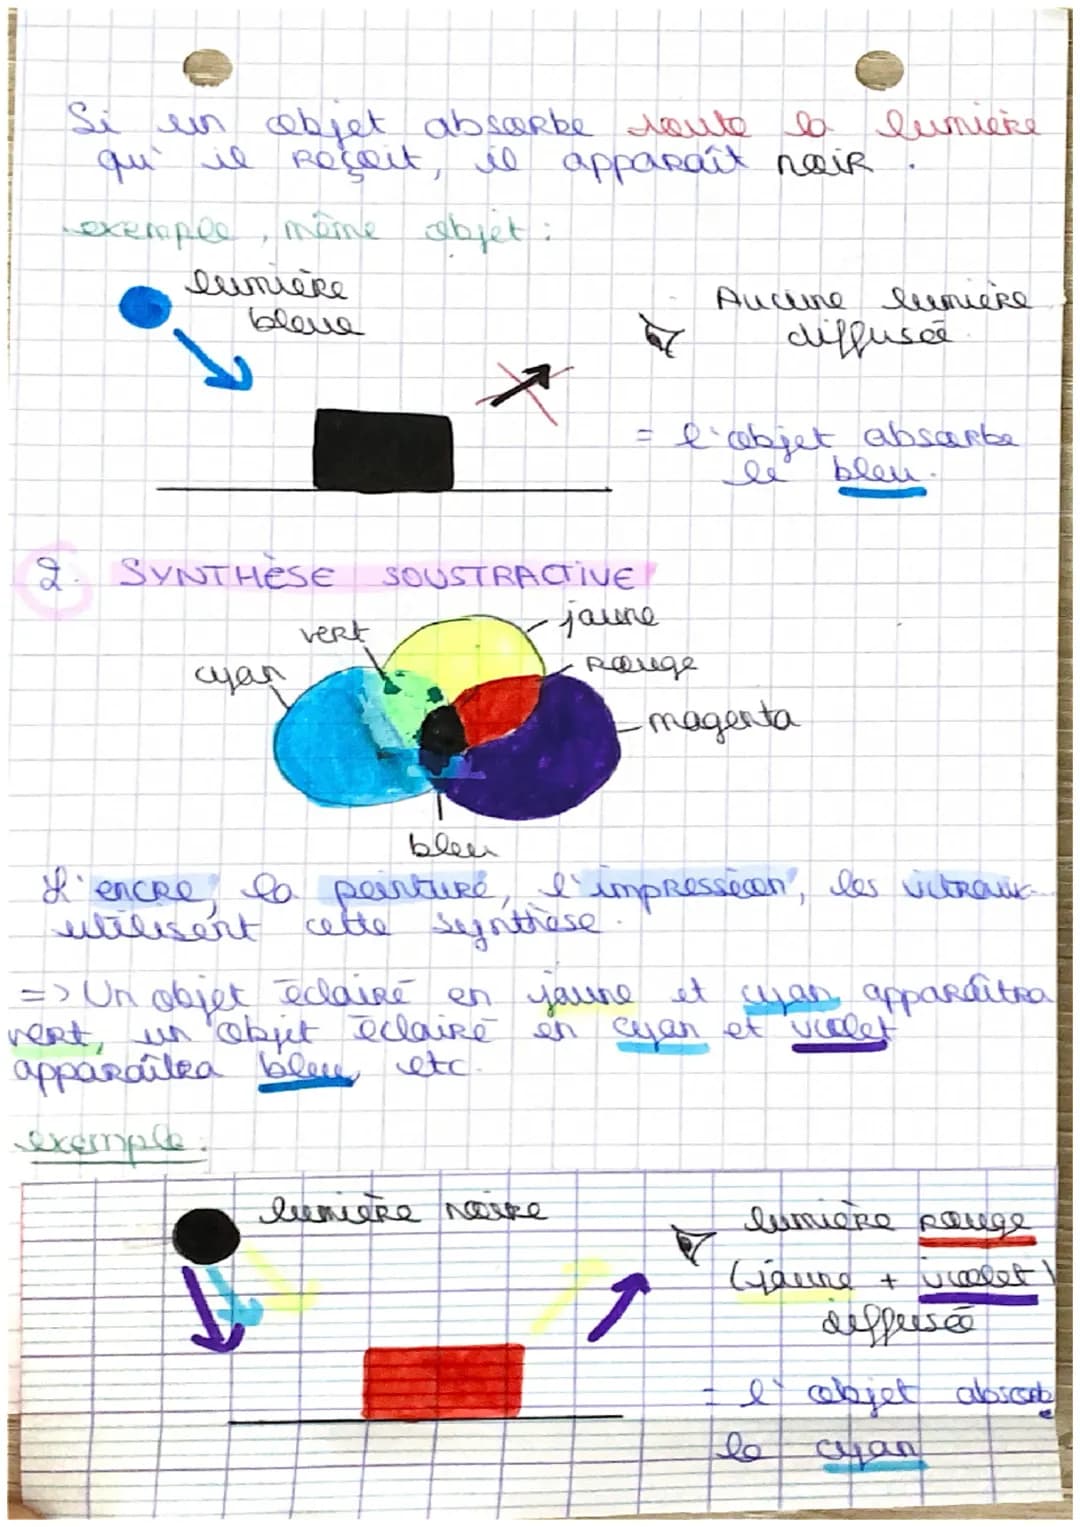 Si un objet absorbe toute la lumière
qu'il reçoit, il apparaît noir.
exemple, même objet :
lumière
bleue
Aucune lumière
diffusée
= l'objet absorbe
le bleu.
2. SYNTHÈSE SOUSTRACTIVE
jaune
vert
rouge
cyan
magenta
bleu
L'encre, la peinture, l'impression, les vitraux
utilisent cette synthèse.
=> Un objet éclairé en jaune et cyan apparaîtra
vert, un objet éclairé en cyan et violet
apparaîtra bleu, etc.
exemple :
lumière noire
lumière rouge
(jaune + violet)
diffusée
= l'objet absorbe
le cyan